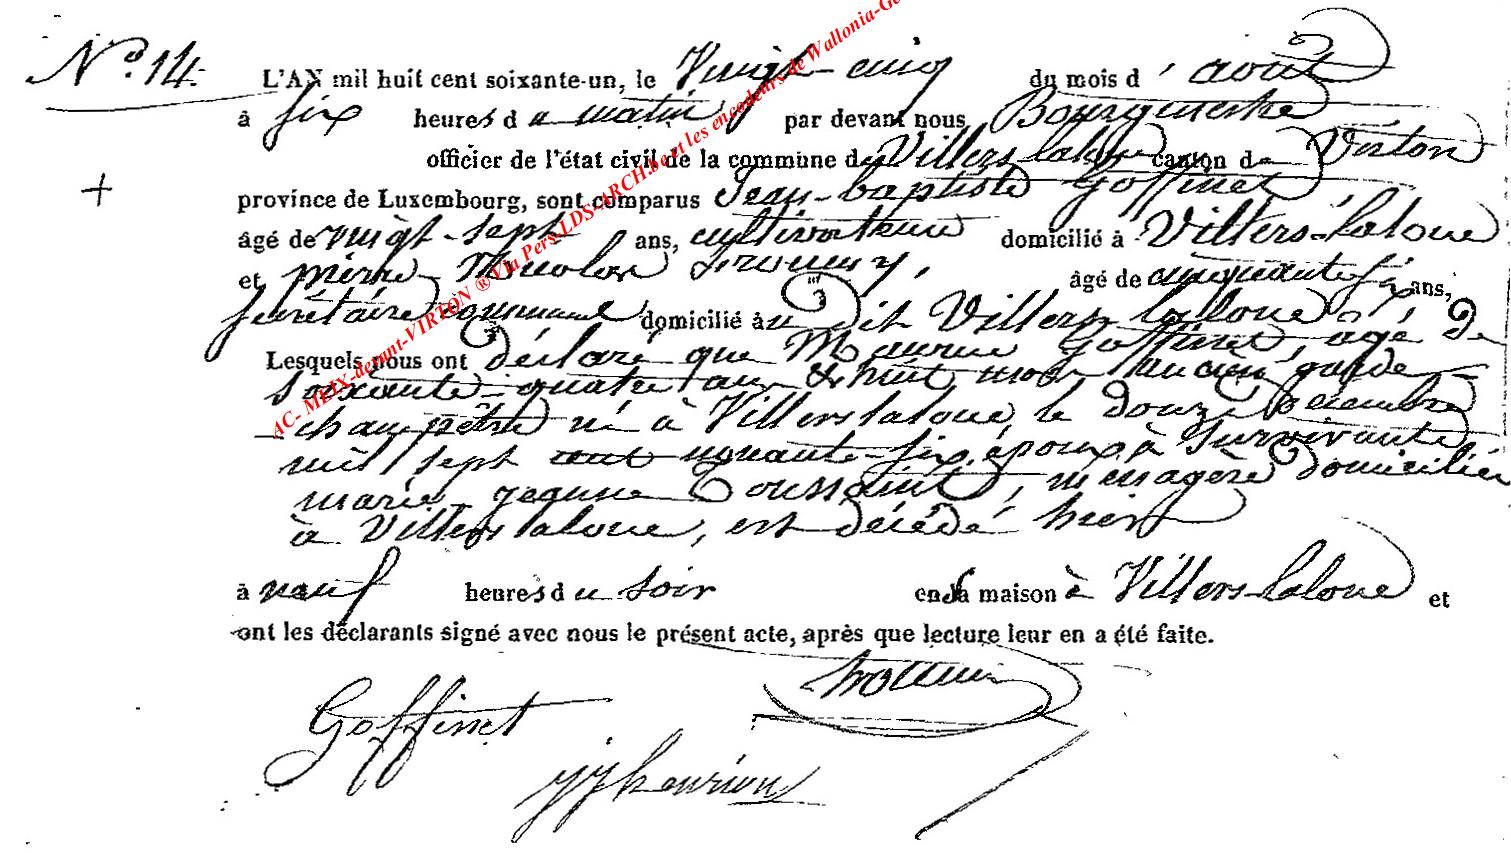 N° 14.
L'AN mil huit cent soixante-un, le Vingt-cinq du mois d'août
à six heures du matin par devant nous Bourgmestre
officier de l'état civil de la commune de Villers-laloue canton de Virton
province de Luxembourg, sont comparus Jean-baptiste Goffinet
âgé de vingt-sept ans, cultivateur domicilié à Villers-laloue
et pierre Nicolas âgé de cinquante six ans,
secrétaire communal domicilié au dit Villers laloue
Lesquels nous ont déclaré que Maurice Goffinet, âgé de
soixante-quatre ans & huit mois ancien garde
champêtre né à Villers laloue le douze Décembre
mil sept cent nonante-six, époux à survivante
marie-jeanne Toussaint, ménagère domiciliée
à Villers laloue, est décédé hier
à neuf heures du soir en sa maison à Villers-laloue et
ont les déclarants signé avec nous le présent acte, après que lecture leur en a été faite.
Goffinet
JJ henrion
AC- MEIX-devant-VIRTON ® Via Pers-LDS-ARCH.be et les encodeurs de Wallonia-Ge